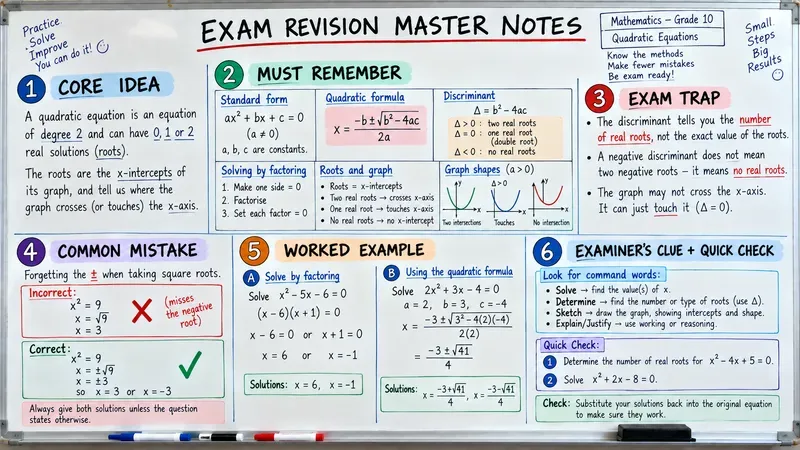 Practice
• Solve
Improve
You can do it!
EXAM REVISION MASTER NOTES
Mathematics – Grade 10
Quadratic Equations
Know the methods
Make fewer mistakes
Be exam ready!
Small
Steps
Big
Results
1 CORE IDEA
A quadratic equation is an equation
of degree 2 and can have 0, 1 or 2
real solutions (roots).
The roots are the x-intercepts of
its graph, and tell us where the
graph crosses (or touches) the x-axis.
2 MUST REMEMBER
Standard form
ax² + bx + c = 0
(a ≠ 0)
a, b, c are constants.
Quadratic formula
x = (−b ± √(b² − 4ac)) / 2a
Discriminant
Δ = b² − 4ac
Δ > 0 : two real roots
Δ = 0 : one real root
(double root)
Δ < 0 : no real roots
Solving by factoring
1. Make one side = 0
2. Factorise
3. Set each factor = 0
Roots and graph
• Roots = x-intercepts
• Two real roots → crosses x-axis
• One real root → touches x-axis
• No real roots → no x-intercept
Graph shapes (a > 0)
y x Δ > 0 y x y x
Two intersections Touches No intersection
3 EXAM TRAP
• The discriminant tells you the number
of real roots, not the exact value of the roots.
• A negative discriminant does not mean
two negative roots – it means no real roots.
• The graph may not cross the x-axis.
It can just touch it (Δ = 0).
4 COMMON MISTAKE
Forgetting the ± when taking square roots.
Incorrect:
x² = 9
x = √9
x = 3
(misses
the negative
root)
Correct:
x² = 9
x = ±√9
x = ±3
so x = 3 or x = −3
Always give both solutions unless the question
states otherwise.
5 WORKED EXAMPLE
A Solve by factoring
Solve x² − 5x − 6 = 0
(x − 6)(x + 1) = 0
x − 6 = 0 or x + 1 = 0
x = 6 or x = −1
Solutions: x = 6, x = −1
B Using the quadratic formula
Solve 2x² + 3x − 4 = 0
a = 2, b = 3, c = −4
x = (−3 ± √(3² − 4(2)(−4))) / 2(2)
= (−3 ± √41) / 4
Solutions: x = (−3+√41)/4, x = (−3−√41)/4
6 EXAMINER'S CLUE + QUICK CHECK
Look for command words:
• Solve → find the value(s) of x.
• Determine → find the number or type of roots (use Δ).
• Sketch → draw the graph, showing intercepts and shape.
• Explain/Justify → use working or reasoning.
Quick Check:
1 Determine the number of real roots for x² − 4x + 5 = 0.
2 Solve x² + 2x − 8 = 0.
Check: Substitute your solutions back into the original equation
to make sure they work.